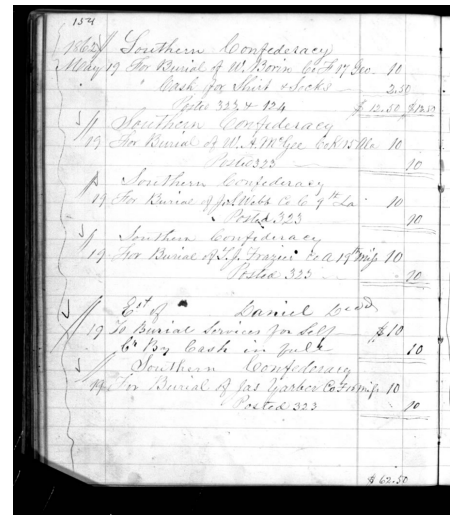 154
1862 Southern Confederacy
May 19 For Burial of W. Borin Co F 17 Geo. 10
" Cash for Shirt & Socks 2.50
Posted 323 & 124 $12.50 $12.50
Southern Confederacy
19 For Burial of W. A. McGee Co K 15 Ala 10
Posted 323 10
Southern Confederacy
19 For Burial of Webb Co C 9th La 10
Posted 323 10
Southern Confederacy
19 For Burial of T. J. Frazier Co A 19th Miss 10
Posted 323 10
Est of Daniel Decd
19 To Burial Services for Self $10
Cr By Cash in full 10
Southern Confederacy
19 For Burial of Jas Co F Miss 10
Posted 323 10
$62.50